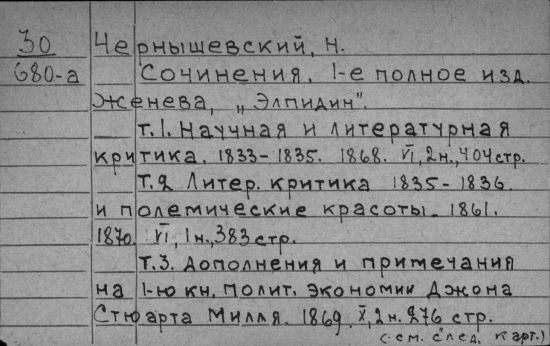 30 Чернышевский, Н.
680-а Сочинения. 1-е полное изд.
Женева, „Элпидин".
Т.1. Научная и литературная
критика. 1833-1835. 1868. VI, 2н., 404 стр.
Т.2 Литер. критика 1835-1836.
и полемические красоты. 1861.
1870. VI, 1н., 383 стр.
Т.3. Дополнения и примечания
на 1-ю кн. полит. экономии Джона
Стюарта Милля. 1869. X, 2н. 276 стр.
(см. след. карт.)